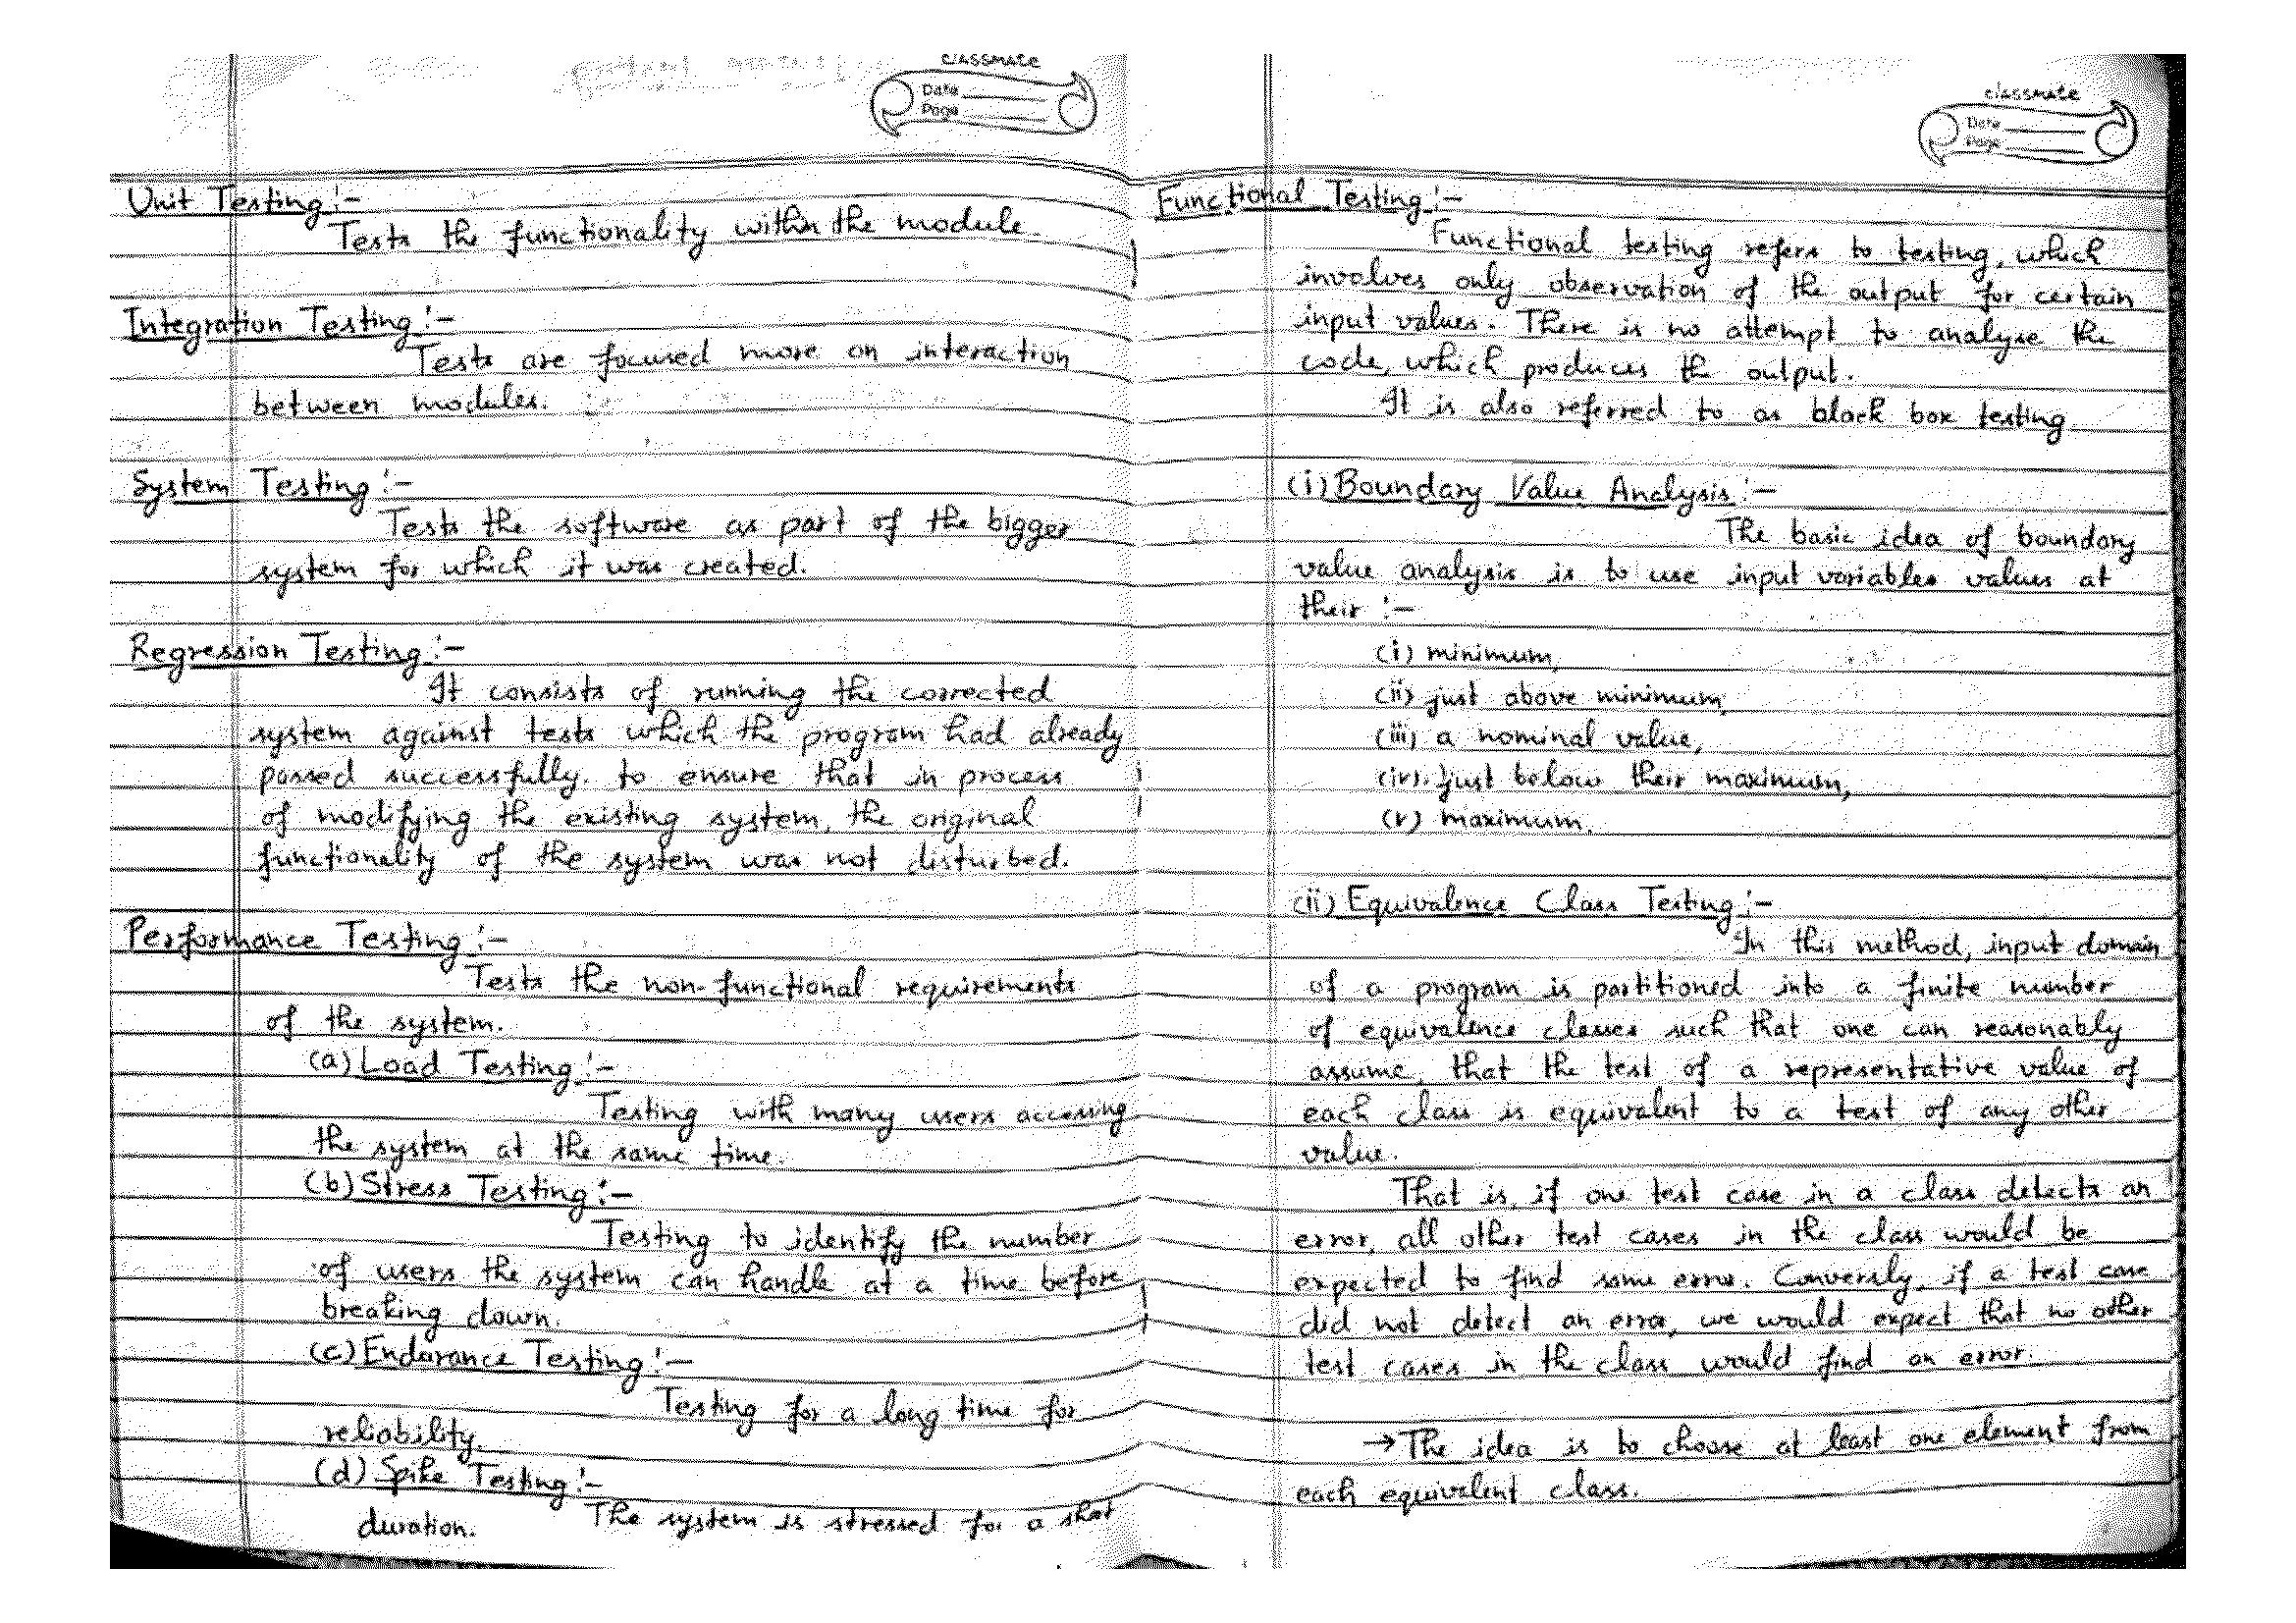 classmate
Date
Page
Unit Testing :-
Tests the functionality within the module.
Integration Testing :-
Tests are focused more on interaction
between modules.
System Testing :-
Tests the software as part of the bigger
system for which it was created.
Regression Testing :-
It consists of running the corrected
system against tests which the program had already
passed successfully. to ensure that in process
of modifying the existing system, the original
functionality of the system was not disturbed.
Performance Testing :-
Tests the non-functional requirements
of the system.
(a) Load Testing :-
Testing with many users accessing
the system at the same time.
(b) Stress Testing :-
Testing to identify the number
of users the system can handle at a time before
breaking down.
(c) Endurance Testing :-
Testing for a long time for
reliability.
(d) Spike Testing :-
The system is stressed for a shot
duration.
classmate
Date
Page
Functional Testing :-
Functional testing refers to testing, which
involves only observation of the output for certain
input values. There is no attempt to analyse the
code, which produces the output.
It is also referred to as black box testing
(i) Boundary Value Analysis :-
The basic idea of boundary
value analysis is to use input variables values at
their :-
(i) minimum,
(ii) just above minimum,
(iii) a nominal value,
(iv) just below their maximum,
(v) maximum.
(ii) Equivalence Class Testing :-
In this method, input domain
of a program is partitioned into a finite number
of equivalence classes such that one can reasonably
assume, that the test of a representative value of
each class is equivalent to a test of any other
value.
That is, if one test case in a class detects an
error, all other test cases in the class would be
expected to find same error. Conversly, if a test case
did not detect an error, we would expect that no other
test cases in the class would find an error.
→ The idea is to choose at least one element from
each equivalent class.